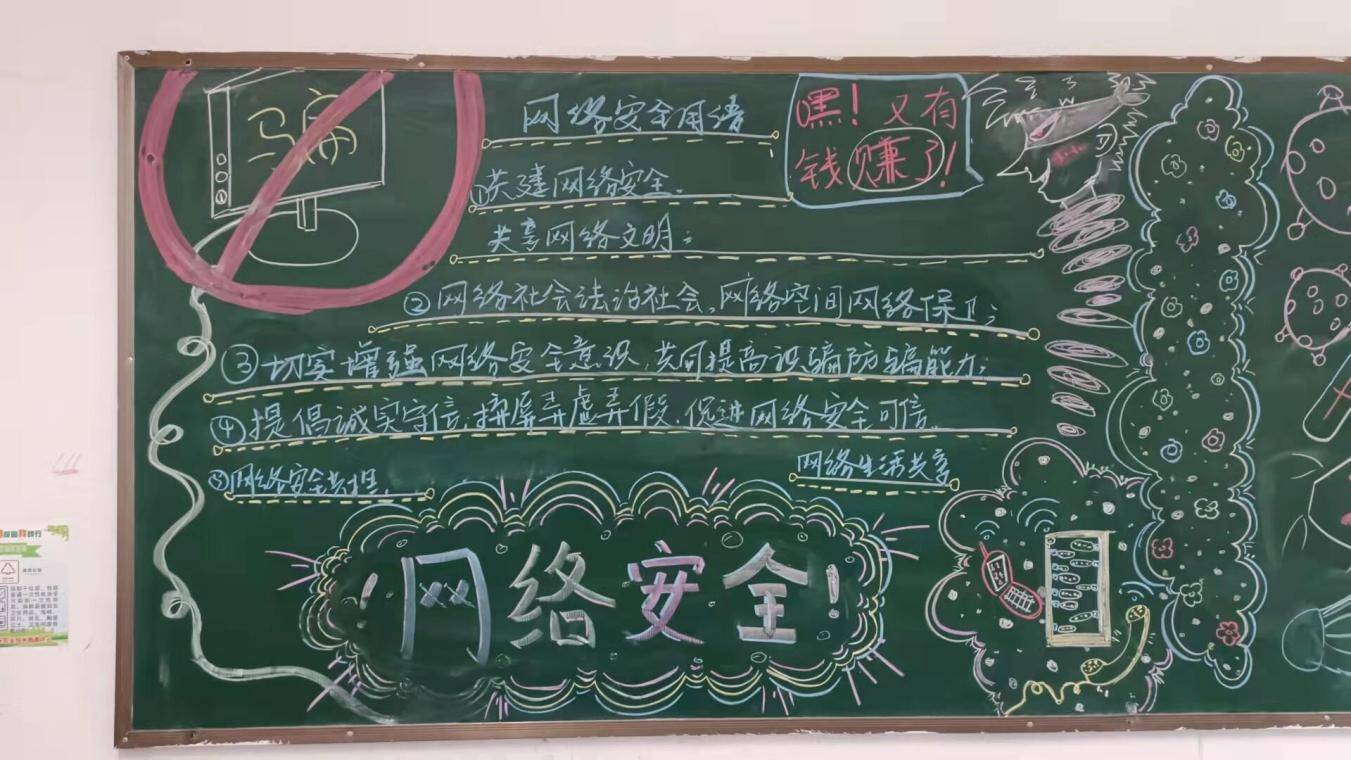 马病
网络安全用语
嘿！又有
钱赚了！
①共建网络安全。
共享网络文明；
②网络社会法治社会、网络空间网络保卫；
③切实增强网络安全意识，共同提高识骗防骗能力；
④提倡诚实守信，摒屏弄虚弄假，促进网络安全可信。
⑤网络安全共担，
网络生活共享
网络安全